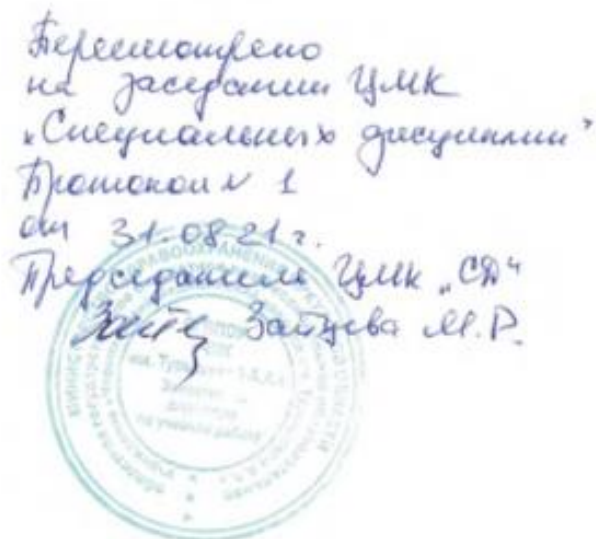 Пересмотрено
на заседании ЦМК
„Специальных дисциплин"
Протокол № 1
от 31.08.21 г.
Председатель ЦМК „СД"
Зайцева М.Р.
по учебной работе